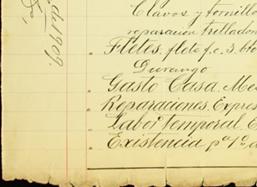 de 1909.
Clavos y tornillo
reparacion trillado
Fletes, flete f.c. 3. bto
Durango
Gasto Casa. Me
Reparaciones. Expres
Labor temporal. C
Existencia pa 1o. d